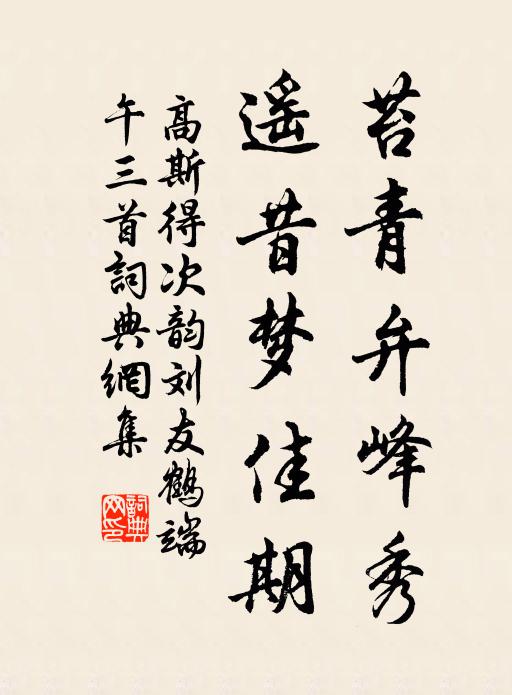 苕青弁峰秀
遥昔梦佳期
高斯得次韵刘友鹤端
午三首詞典網集
詞典网印